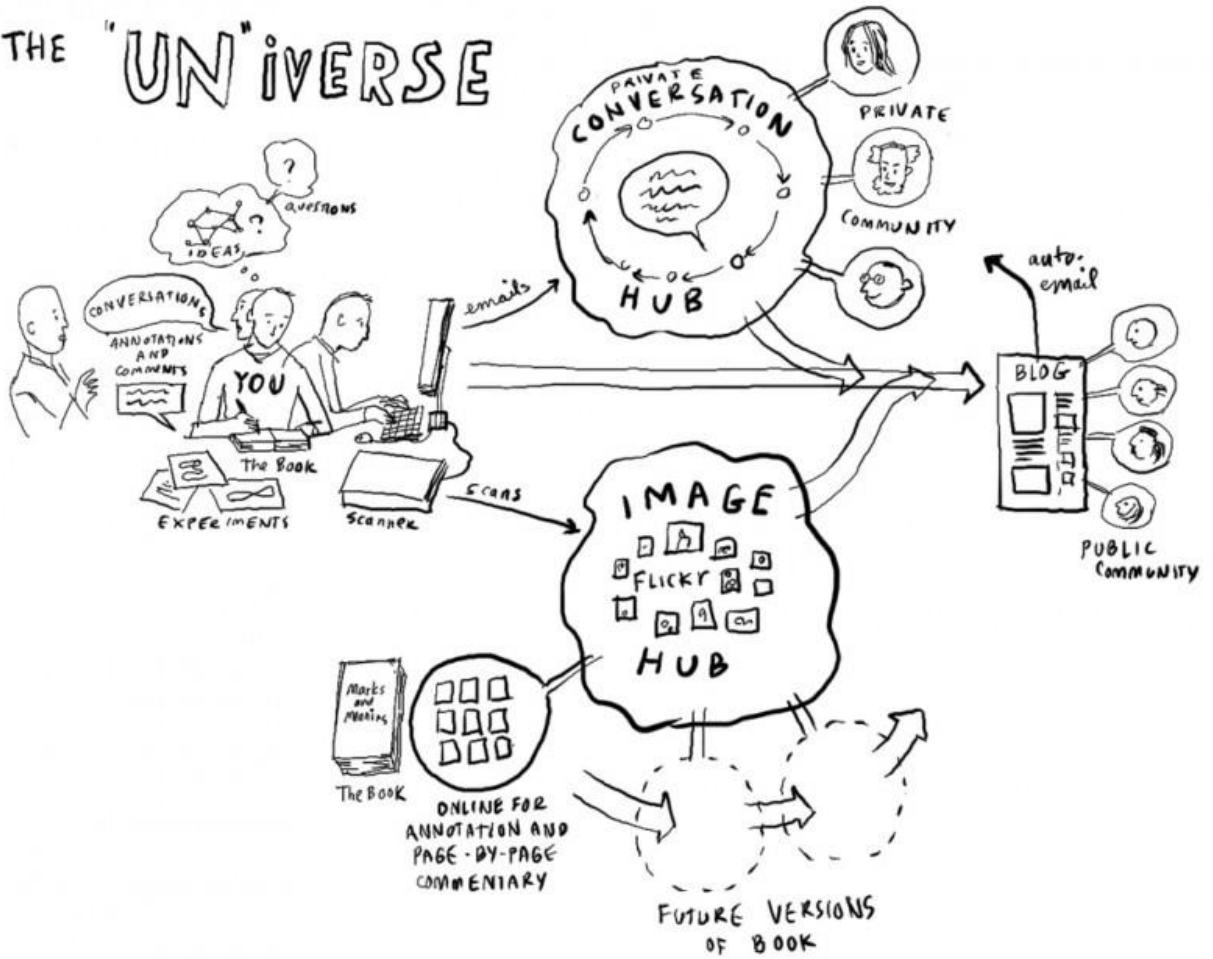 THE "UN"iVERSE
?
QUESTIONS
?
IDEAS
CONVERSATIONS
ANNOTATIONS
AND
COMMENTS
YOU
The Book
EXPERIMENTS
Scanner
emails
scans
PRIVATE
CONVERSATION
HUB
PRIVATE
COMMUNITY
auto-
email
BLOG
PUBLIC
COMMUNITY
IMAGE
FLICKr
HUB
Marks
and
Meaning
The Book
ONLINE FOR
ANNOTATION AND
PAGE-BY-PAGE
COMMENTARY
FUTURE VERSIONS
OF BOOK